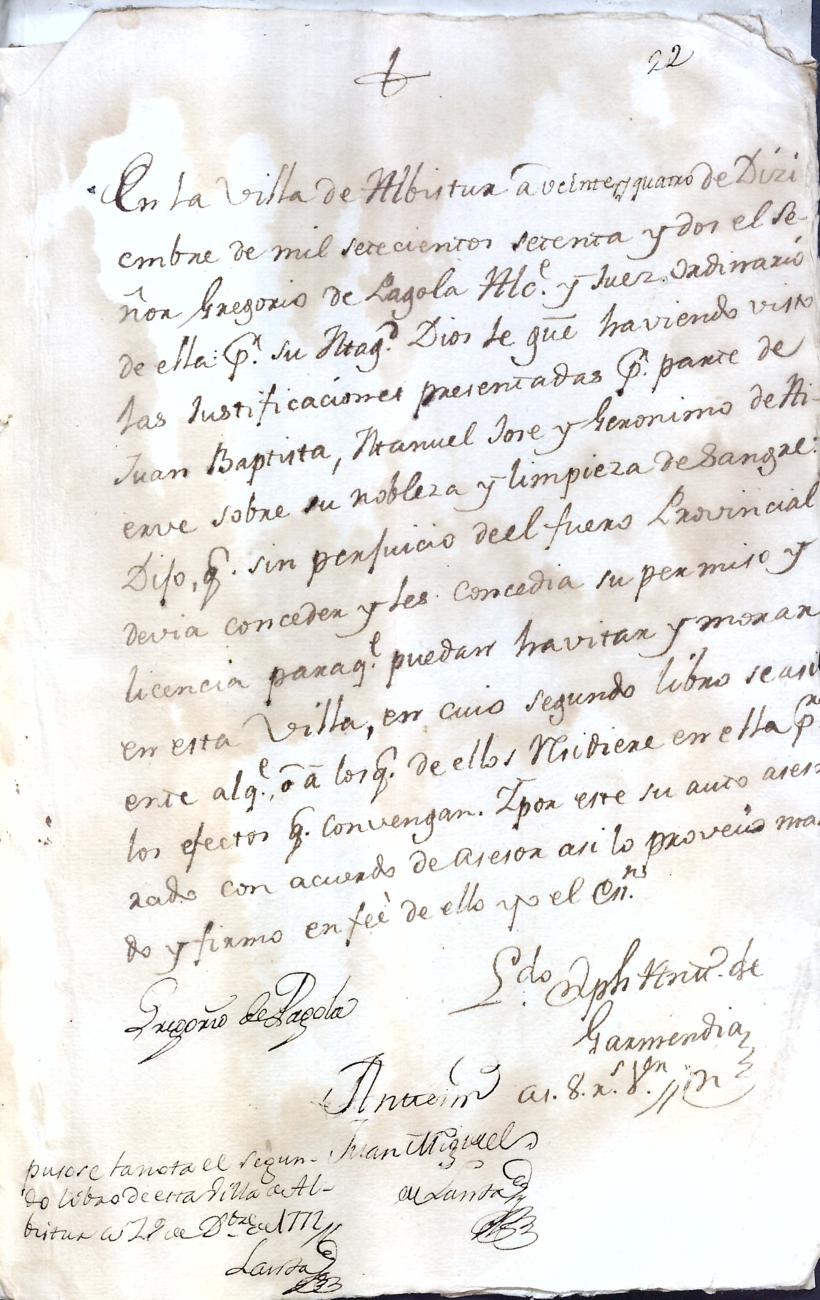 22
En la Villa de Albistur a veinte y quatro de Dizi
embre de mil setecientos setenta y dos el se-
ñor Gregorio de Pagola Alc.e y Juez ordinario
de ella p.r su Mag.d Dios le gue haviendo visto
las Justificaciones presentadas p.r parte de
Juan Baptista, Manuel Jose y Geronimo de Ni-
erve sobre su nobleza y limpieza de Sangre:
Dijo, q.e sin perjuicio de el fuero Provincial
devia conceder y les concedia su permiso y
licencia paraq.e puedan havitar y morar
en esta Villa, en cuio segundo libro se asi
ente alq.e, ó á losq.e de ellos residiere en ella p.ra
los efectos q.e convengan. Ypor este su auto aseso
rado con acuerdo de Asesor asi lo proveió man
do y firmo en feè de ello yo el Es.no
Gregorio de Pagola
L.do Jph Antt.o de
Garmendia
Antemi
Juan Miguel
de Landa
pusose la nota el segun-
do libro de esta Villa de Al-
bistur a 29 de Dbre de 1772
Landa